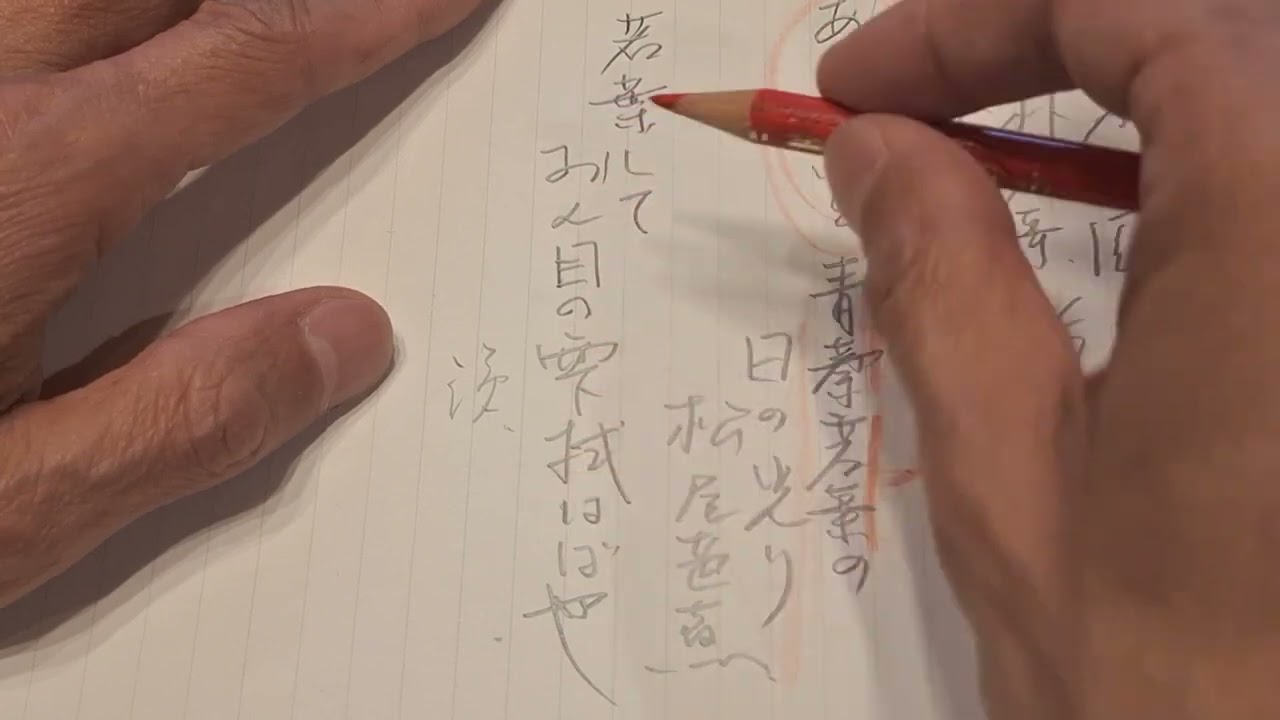 あ 青葉若葉の
日の光り
松尾芭蕉
若葉して
おん目の雫拭はばや
涙